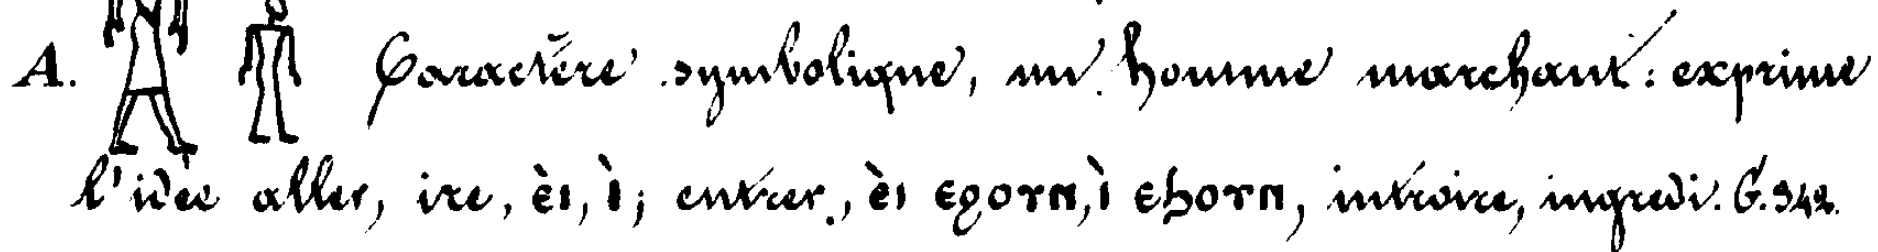 A. Caractère symbolique, un homme marchant : exprime
l'idée aller, ire, ⲉ̀ⲓ, ⲓ̀; entrer, ⲉ̀ⲓ ⲉϩⲟⲩⲛ, ⲓ̀ ⲉϧⲟⲩⲛ, introire, ingredi. G. 342.